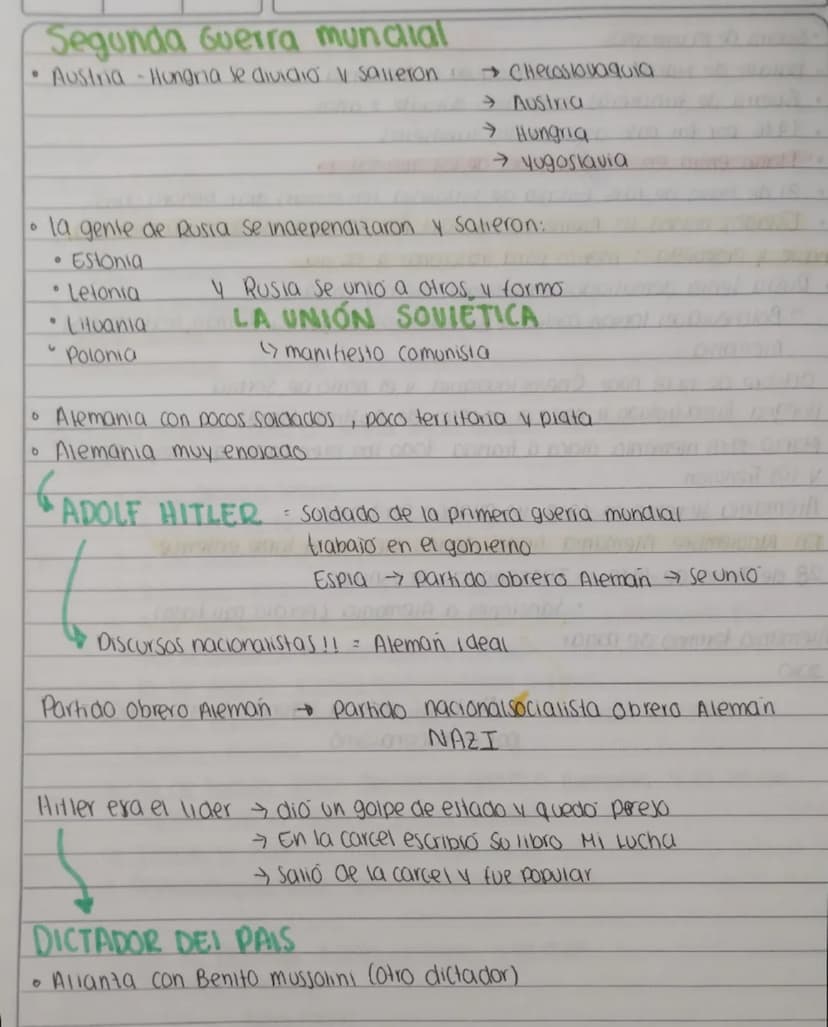 Segunda Guerra mundial
• Austria - Hungria se dividió y salieron → Checoslovaquia
→ Austria
→ Hungria
→ Yugoslavia
• la gente de Rusia se independizaron y salieron:
• Estonia
• Letonia y Rusia se unio a otros y formo
• Lituania LA UNIÓN SOVIÉTICA
• Polonia ↳ manifiesto comunista
• Alemania con pocos soldados, poco territorio y plata
• Alemania muy enojado
ADOLF HITLER = soldado de la primera guerra mundial
trabajó en el gobierno
Espia → partido obrero Aleman → se unió
Discursos nacionalistas!! = Aleman ideal
Partido obrero Aleman → partido nacionalsocialista obrero Aleman
NAZI
Hitler era el lider → dió un golpe de estado y quedó preso
→ En la carcel escribió su libro Mi Lucha
→ Salió de la carcel y fue popular
DICTADOR DEL PAIS
• Alianza con Benito mussolini (otro dictador)